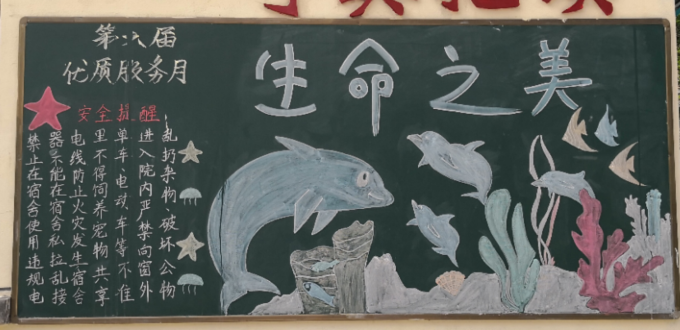 第六届
优质服务月
生命之美
安全提醒
禁止在宿舍使用违规电
器不能在宿舍私拉乱接
电线防止火灾发生宿舍
里不得饲养宠物共享
单车、电动车等不准
进入院内严禁向窗外
乱扔杂物、破坏公物